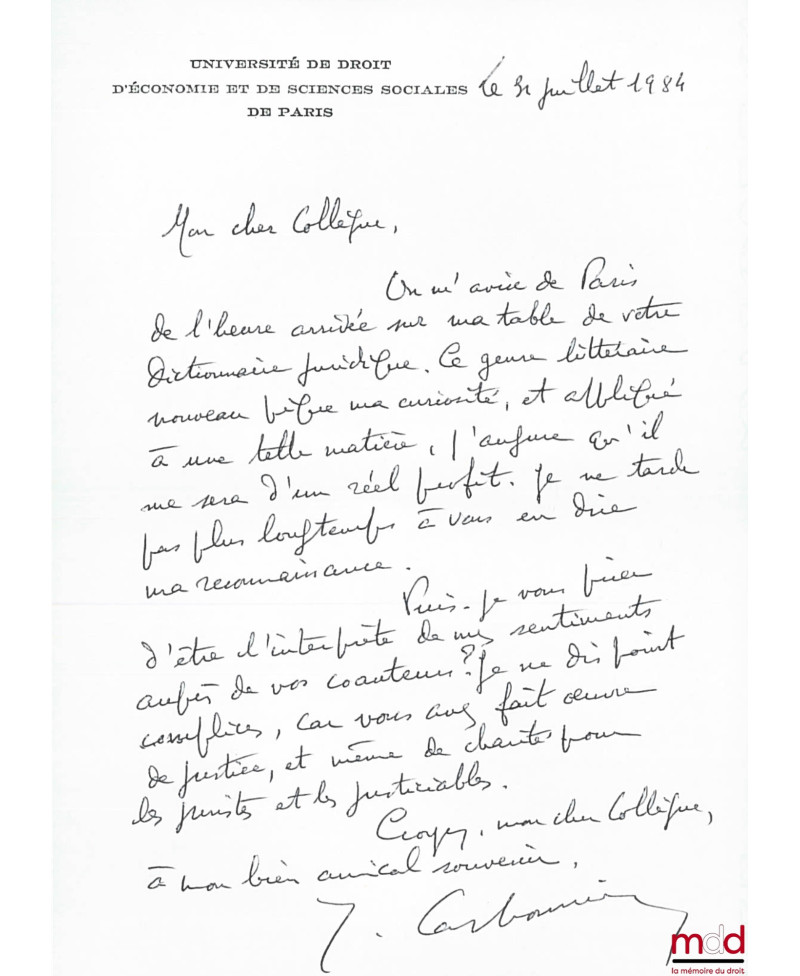 UNIVERSITÉ DE DROIT
D'ÉCONOMIE ET DE SCIENCES SOCIALES
DE PARIS
le 31 juillet 1984
Mon cher Collègue,
On m'avise de Paris
de l'heure arrivée sur ma table de votre
Dictionnaire juridique. Ce genre littéraire
nouveau pique ma curiosité, et appliqué
à une telle matière, j'augure qu'il
me sera d'un réel profit. Je ne tarde
pas plus longtemps à vous en dire
ma reconnaissance.
Puis-je vous prier
d'être l'interprète de mes sentiments
auprès de vos coauteurs? Je ne dis point
complices, car vous avez fait œuvre
de justice, et même de charité pour
les juristes et les justiciables.
Croyez, mon cher Collègue,
à mon bien amical souvenir.
J. Carbonnier
mdd
la mémoire du droit